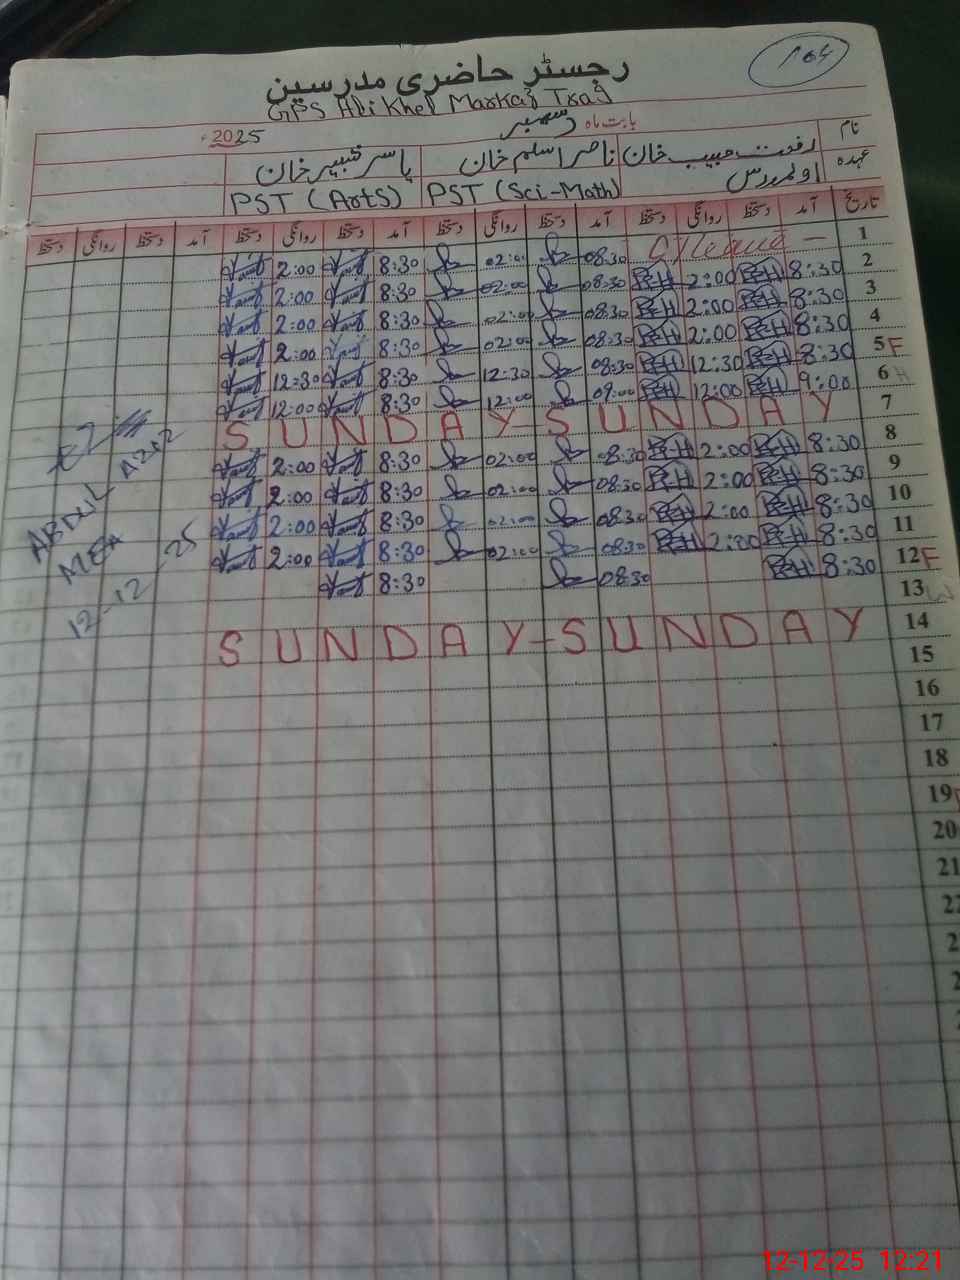 164
رجسٹر حاضری مدرسین
GPS Ali Khel Markaz Trag
بابت ماہ دسمبر 2025ء
نام رفعت حبیب خان ناصر اسلم خان یاسر شبیر خان
عہدہ اول مدرس PST (Sci-Math) PST (Arts)
تاریخ آمد دستخط روانگی دستخط آمد دستخط روانگی دستخط آمد دستخط روانگی دستخط آمد دستخط روانگی دستخط
1 08:30 02:00 8:30 2:00
2 8:30 2:00 08:30 02:00 8:30 2:00
3 8:30 2:00 08:30 02:00 8:30 2:00
4 8:30 2:00 08:30 02:00 8:30 2:00
5 F 8:30 12:30 08:30 12:30 8:30 12:30
6 9:00 12:00 09:00 12:00 8:30 12:00
7 SUNDAY-SUNDAY
8 8:30 2:00 08:30 02:00 8:30 2:00
9 8:30 2:00 08:30 02:00 8:30 2:00
10 8:30 2:00 08:30 02:00 8:30 2:00
11 8:30 2:00 08:30 02:00 8:30 2:00
12 F 8:30 08:30 8:30
13
14 SUNDAY-SUNDAY
15
16
17
18
19
20
21
22
ABDUL AZIZ
MEA
12-12-25
12-12-25 12:21